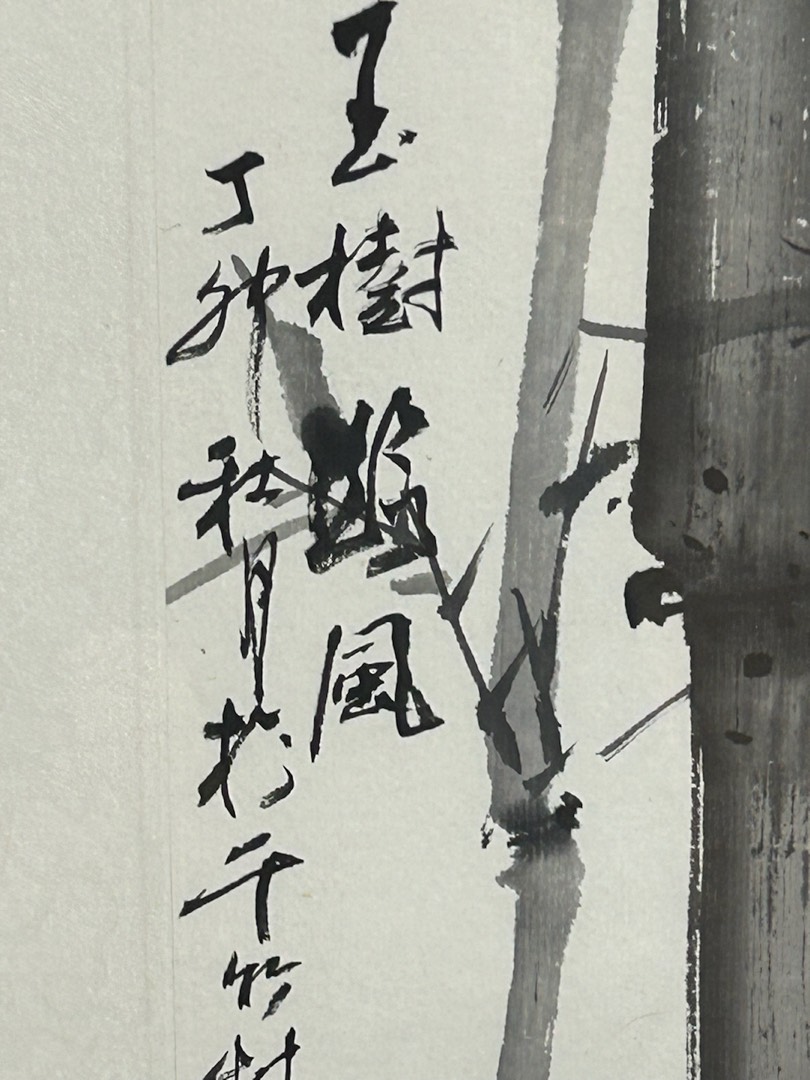 玉樹臨風
丁卯秋月於千竹